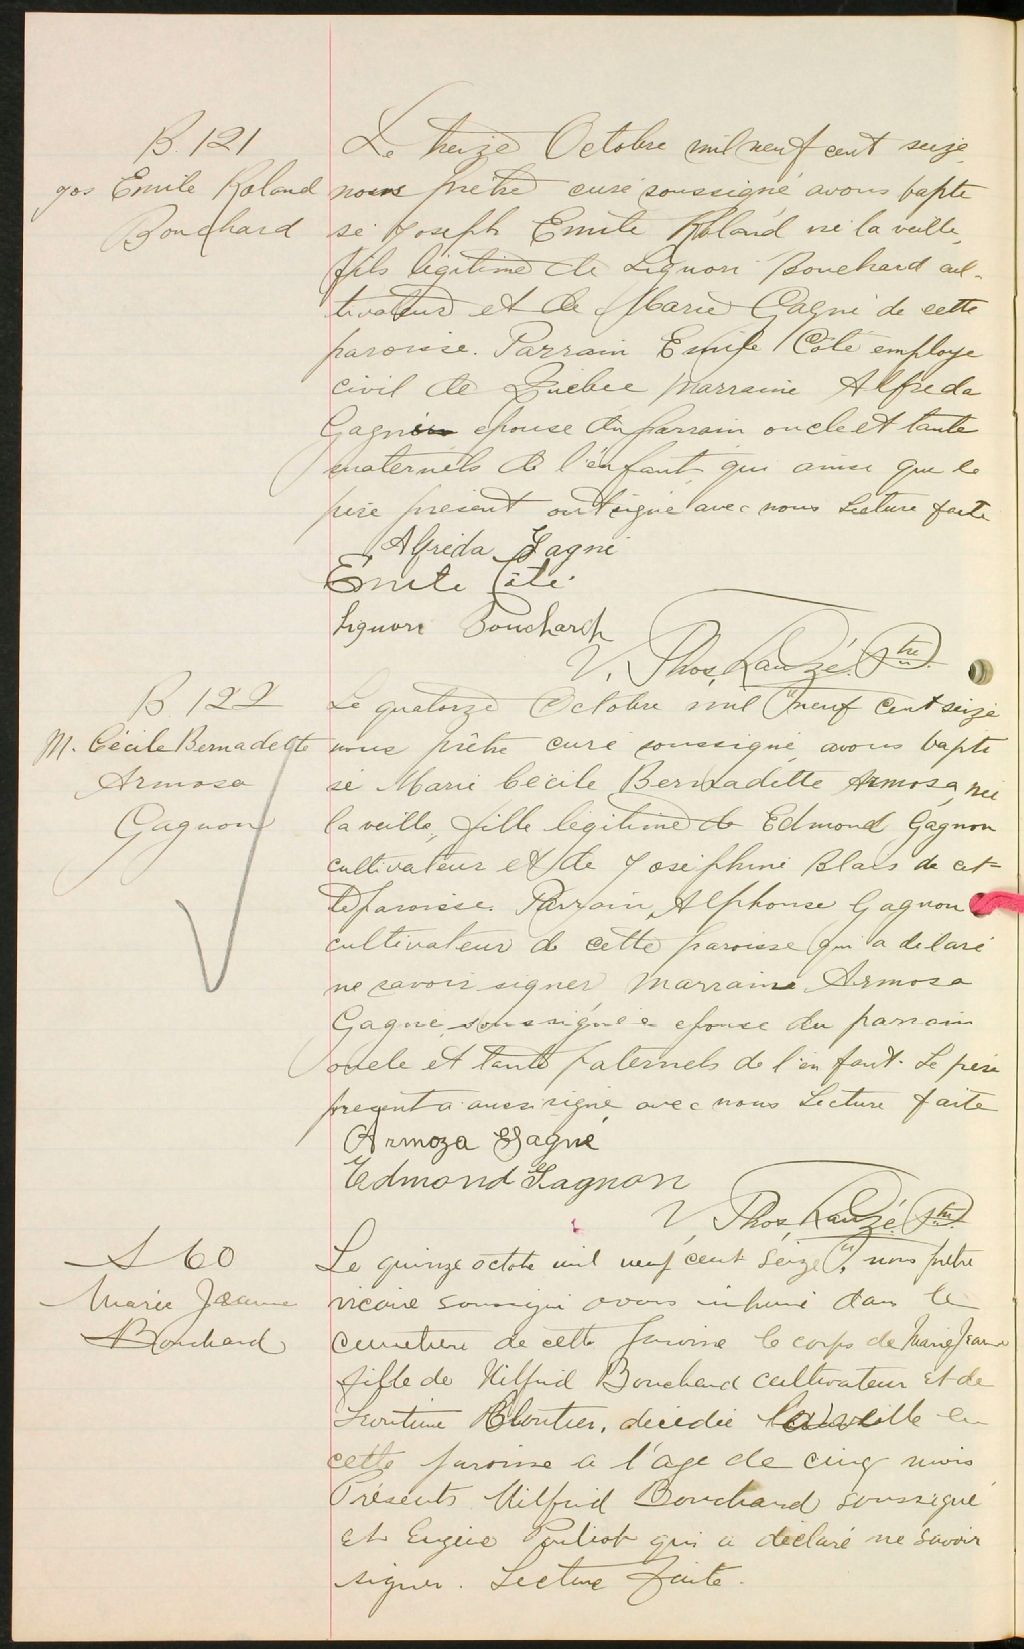 B. 121
Jos Emile Roland
Bouchard
Le treize Octobre mil neuf cent seize
nous prêtre curé soussigné avons bapti
sé Joseph Emile Roland né la veille,
fils légitime de Liguori Bouchard cul-
tivateur et de Marie Gagné de cette
paroisse. Parrain Emile Côté employé
civil de Québec marraine Alfreda
Gagné épouse du parrain oncle et tante
maternels de l'enfant qui ainsi que le
père présent ont signé avec nous Lecture faite
Alfréda Gagné
Emile Côté
Liguori Bouchard
V. Thos, Lauzé, Ptre
B. 122
M. Cécile Bernadette
Armosa
Gagnon
Le quatorze Octobre mil neuf cent seize
nous prêtre curé soussigné avons bapti
sé Marie Cécile Bernadette Armosa née
la veille, fille légitime de Edmond Gagnon
cultivateur et de Joséphine Blais de cet-
te paroisse. Parrain, Alphonse Gagnon
cultivateur de cette paroisse qui a délaré
ne savoir signer, marraine Armosa
Gagné, soussignée épouse du parrain
oncle et tante paternels de l'enfant. Le père
present a aussi signé avec nous Lecture faite
Armoza Gagné
Edmond Gagnon
V. Thos, Lauzé, Ptre
S 60
Marie Jeanne
Bouchard
Le quinze octobre mil neuf cent seize, nous prêtre
vicaire soussigné avons inhumé dans le
cimetière de cette paroisse le corps de Marie Jeanne
fille de Wilfrid Bouchard cultivateur et de
Cloutier, décédée la veille en
cette paroisse a l'age de cinq mois
Présents Wilfrid Bouchard soussigné
et Eugène Pouliot qui a déclaré ne savoir
signer. Lecture faite.